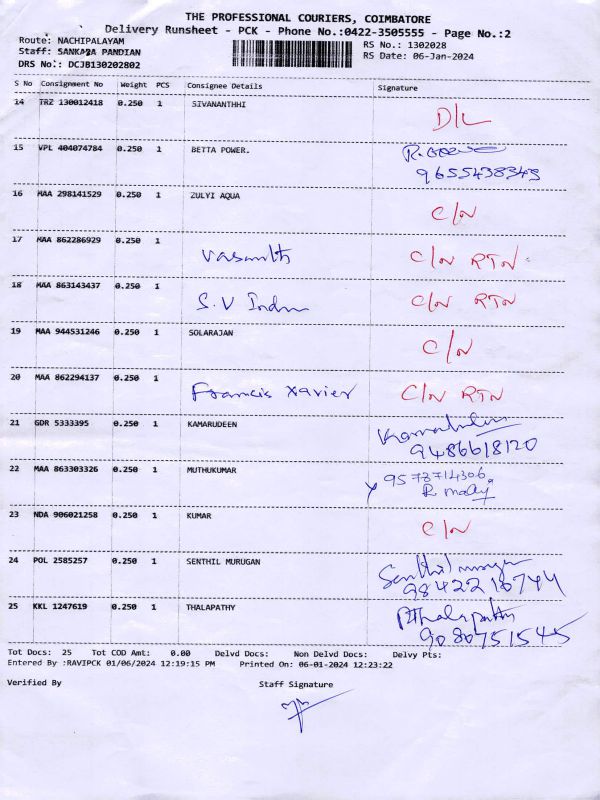 THE PROFESSIONAL COURIERS, COIMBATORE
Delivery Runsheet - PCK - Phone No.:0422-3505555 - Page No.:2
Route: NACHIPALAYAM
Staff: SANKARA PANDIAN
RS No.: 1302028
DRS No.: DCJB130202802
RS Date: 06-Jan-2024
S No Consignment No Weight PCS Consignee Details Signature
14 TRZ 130012418 0.250 1 SIVANANTHHI D/L
15 VPL 404074784 0.250 1 BETTA POWER.
9655438349
16 MAA 298141529 0.250 1 ZULYI AQUA C/N
17 MAA 862286929 0.250 1 Vasanth C/N RTN
18 MAA 863143437 0.250 1 S.V Indru C/N RTN
19 MAA 944531246 0.250 1 SOLARAJAN C/N
20 MAA 862294137 0.250 1 Francis Xavier C/N RTN
21 GDR 5333395 0.250 1 KAMARUDEEN
9486618120
22 MAA 863303326 0.250 1 MUTHUKUMAR 9573714306
23 NDA 906021258 0.250 1 KUMAR C/N
24 POL 2585257 0.250 1 SENTHIL MURUGAN Senthil murugan
9842210744
25 KKL 1247619 0.250 1 THALAPATHY P.Thalapathy
9080751545
Tot Docs: 25 Tot COD Amt: 0.00 Delvd Docs: Non Delvd Docs: Delvy Pts:
Entered By :RAVIPCK 01/06/2024 12:19:15 PM Printed On: 06-01-2024 12:23:22
Verified By Staff Signature